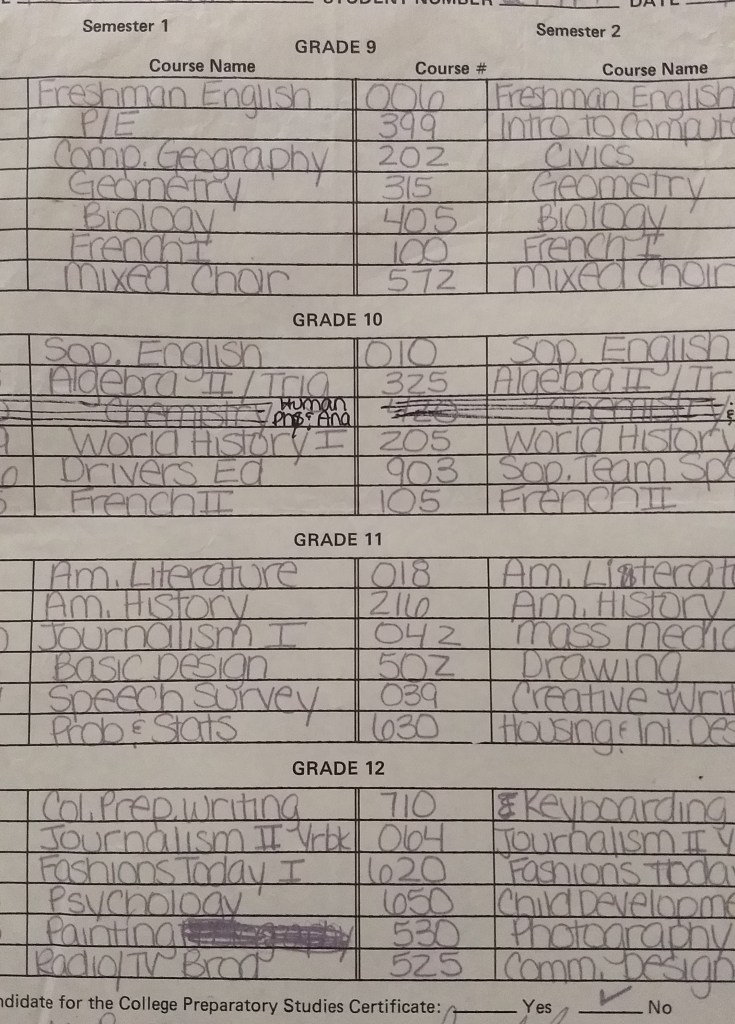 STUDENT NUMBER DATE
Semester 1 Semester 2
GRADE 9
Course Name Course # Course Name
Freshman English 006 Freshman English
P/E 399 Intro to Comput
Comp. Geography 202 Civics
Geometry 315 Geometry
Biology 405 Biology
French I 100 French I
Mixed Choir 572 Mixed Choir
GRADE 10
Sop. English 010 Sop. English
Algebra II / Trig 325 Algebra II / Tr
Chemistry Human Phy & Ana Chemistry
World History I 205 World History
Drivers Ed 903 Sop. Team Spo
French II 105 French II
GRADE 11
Am. Literature 018 Am. Literat
Am. History 216 Am. History
Journalism I 042 Mass Medic
Basic Design 502 Drawing
Speech Survey 039 Creative Writ
Prob & Stats 630 Housing & Int. Des
GRADE 12
Col. Prep. Writing 710 Keyboarding
Journalism II Yrbk 064 Journalism II Y
Fashions Today I 620 Fashions toda
Psychology 650 Child Developme
Painting 530 Photography
Radio/TV Brod 525 Comm. Design
ndidate for the College Preparatory Studies Certificate: Yes ✓ No